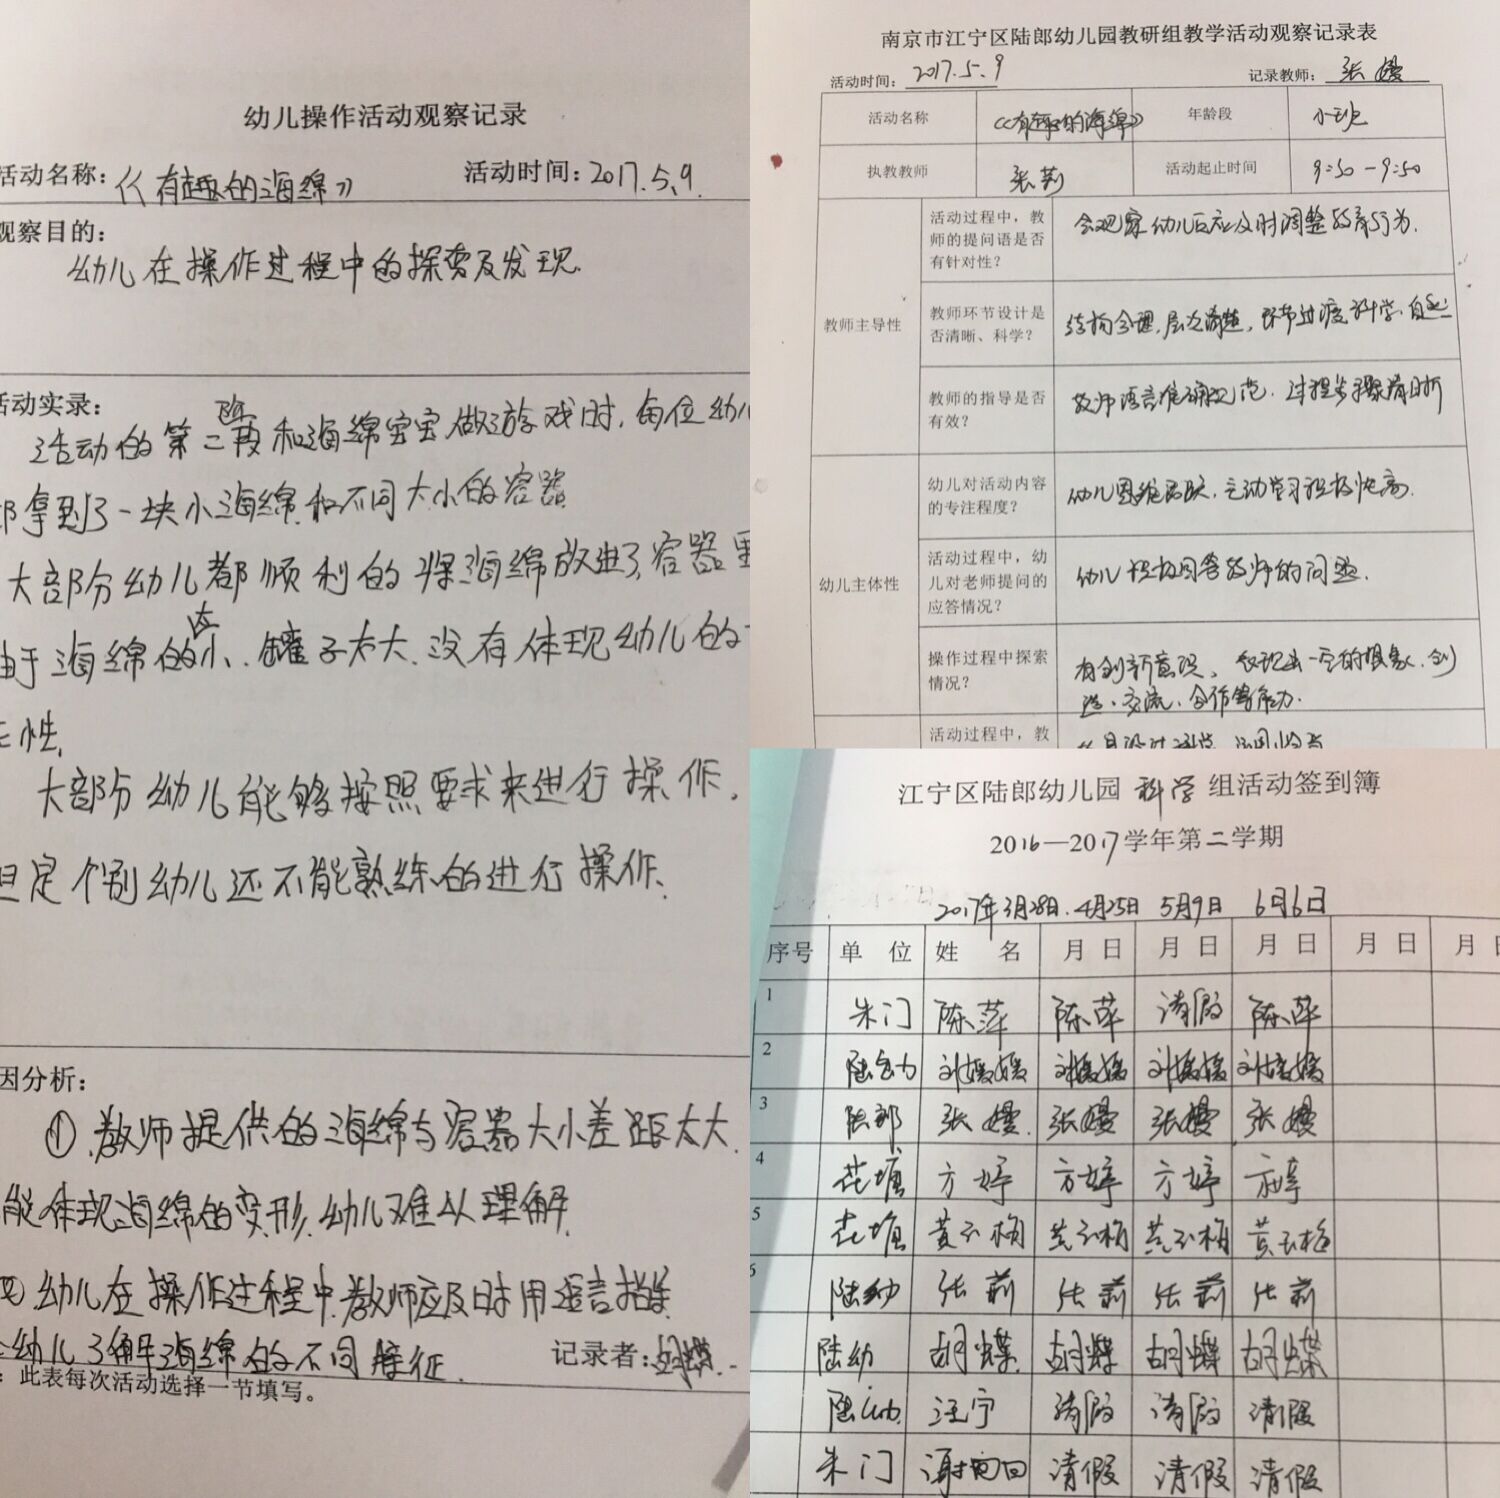 幼儿操作活动观察记录
活动名称：《有趣的海绵》 活动时间：2017.5.9.
观察目的：
幼儿在操作过程中的探索及发现.
活动实录：
活动的第二段和海绵宝宝做游戏时，每位幼儿
都拿到了一块小海绵和不同大小的容器
大部分幼儿都顺利的将海绵放进了容器里
由于海绵的小、罐子太大、没有体现幼儿的
性.
大部分幼儿能够按照要求来进行操作，
但是个别幼儿还不能熟练的进行操作.
因分析：
①.教师提供的海绵与容器大小差距太大
能体现海绵的变形，幼儿难以理解.
幼儿在操作过程中，教师应及时用语言指导
幼儿了解海绵的不同特征. 记录者：胡蝶.
：此表每次活动选择一节填写。
南京市江宁区陆郎幼儿园教研组教学活动观察记录表
活动时间：2017.5.9 记录教师：张嫚
活动名称 《有趣的海绵》 年龄段 小班
执教教师 张莉 活动起止时间 9:30-9:50
教师主导性
活动过程中，教
师的提问语是否
有针对性？
会观察幼儿反应及时调整教育行为.
教师环节设计是
否清晰、科学？
结构合理，层次清楚，环节过渡科学、自然
教师的指导是否
有效？
教师语言准确规范，过程步骤清晰
幼儿主体性
幼儿对活动内容
的专注程度？
幼儿思维活跃，主动学习积极性高.
活动过程中，幼
儿对老师提问的
应答情况？
幼儿积极回答教师的问题.
操作过程中探索
情况？
有创新意识，表现出一定的想象、创
造、交流、合作等能力.
活动过程中，教
江宁区陆郎幼儿园 科学 组活动签到簿
2016—2017学年第二学期
2017年3月28日、4月25日 5月9日 6月6日
序号 单位 姓名 月日 月日 月日 月日 月
1 朱门 陈萍 陈萍 请假 陈萍
2 刘媛媛 刘媛媛 刘媛媛 刘媛媛
3 陆郎 张嫚 张嫚 张嫚 张嫚
4 花塘 方婷 方婷 方婷 方婷
5 花塘 黄玉梅 黄玉梅 黄玉梅 黄玉梅
6 陆幼 张莉 张莉 张莉 张莉
陆幼 胡蝶 胡蝶 胡蝶 胡蝶
陆幼 汪宁 请假 请假 请假
朱门 请假 请假 请假